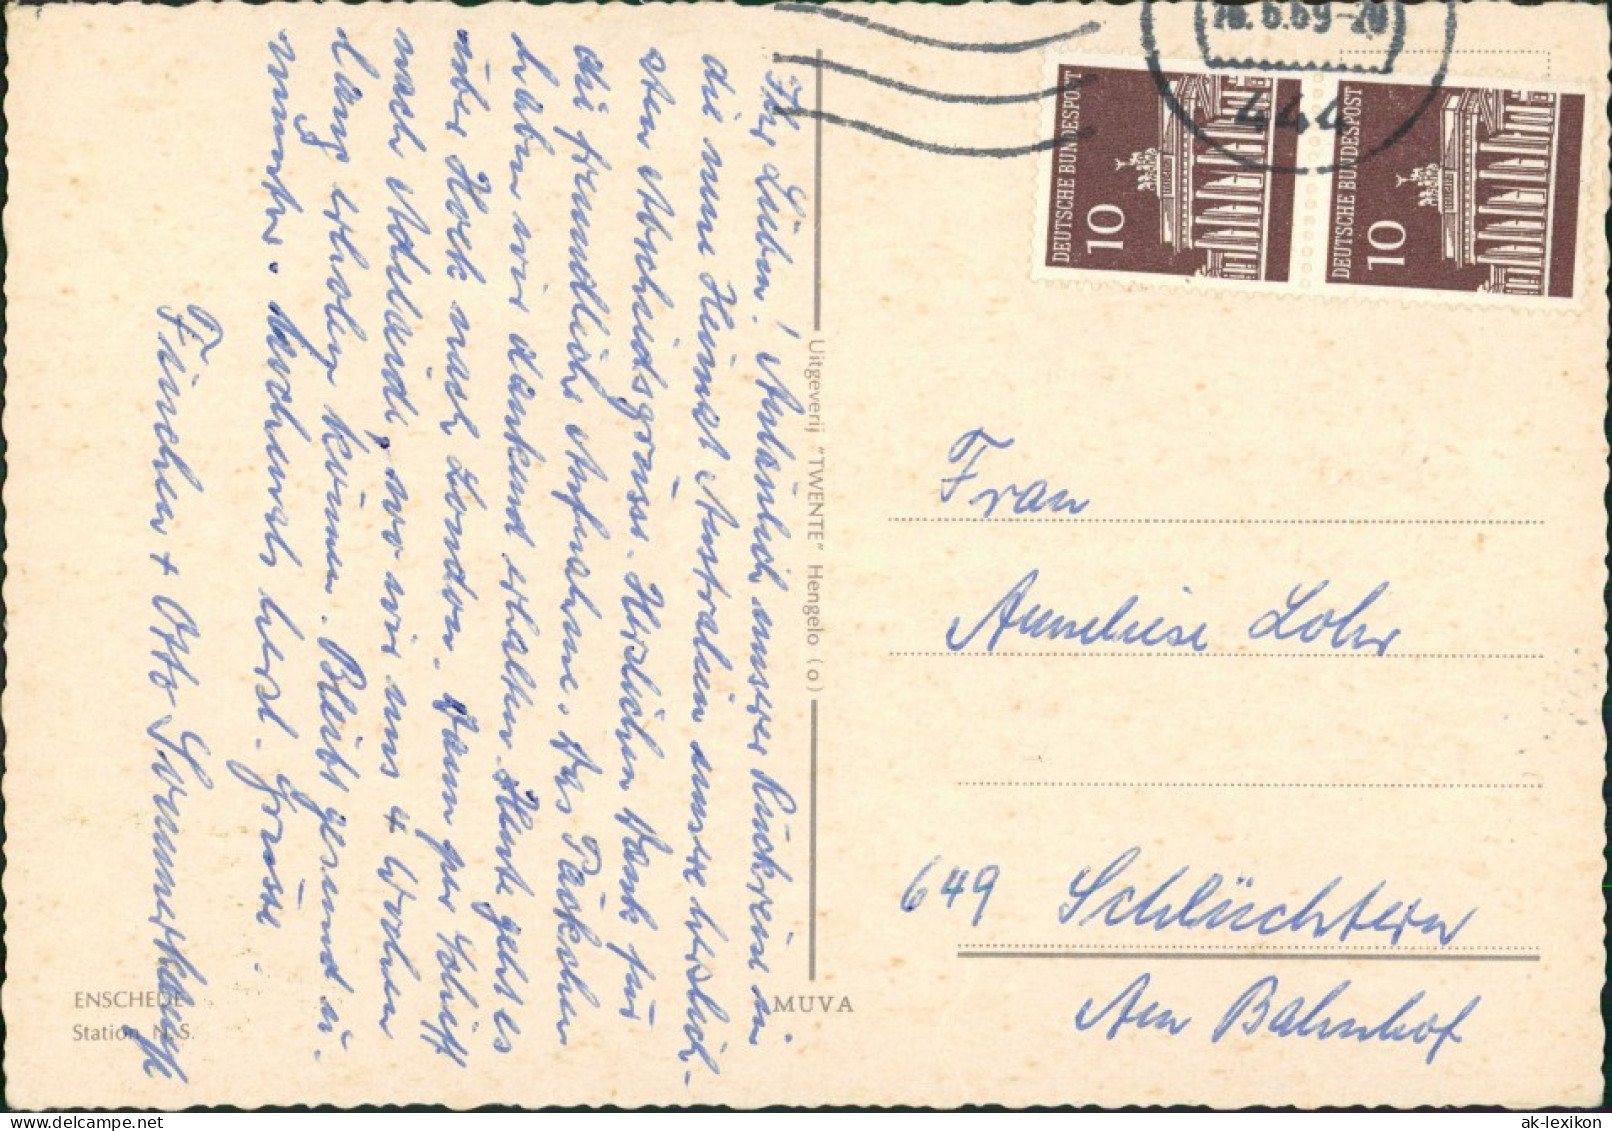 Ihr Lieben! Anlänlich unserer Rückreise in
die neue Heimat Australien unsere herzlich-
sten Abschiedsgrüsse. Herzlichen Dank für
die freundliche Aufnahme. Das Päckchen
haben wir dankend erhalten. Heute geht es
über Hoek nach London. Dann per Schiff
nach Adelaide, wo wir uns 4 Wochen
lang erholen können. Bleibt gesund u.
munter. Nochmals herzl. Grüsse.
Finchen + Otto
ENSCHEDE
Station N.S.
Uitgeverij "TWENTE" Hengelo (o)
MUVA
6.69-20
444
DEUTSCHE BUNDESPOST
10
DEUTSCHE BUNDESPOST
10
Frau
Anneliese Lohr
649 Schlüchtern
Am Bahnhof
ak-lexikon
© ak-lexikon.com